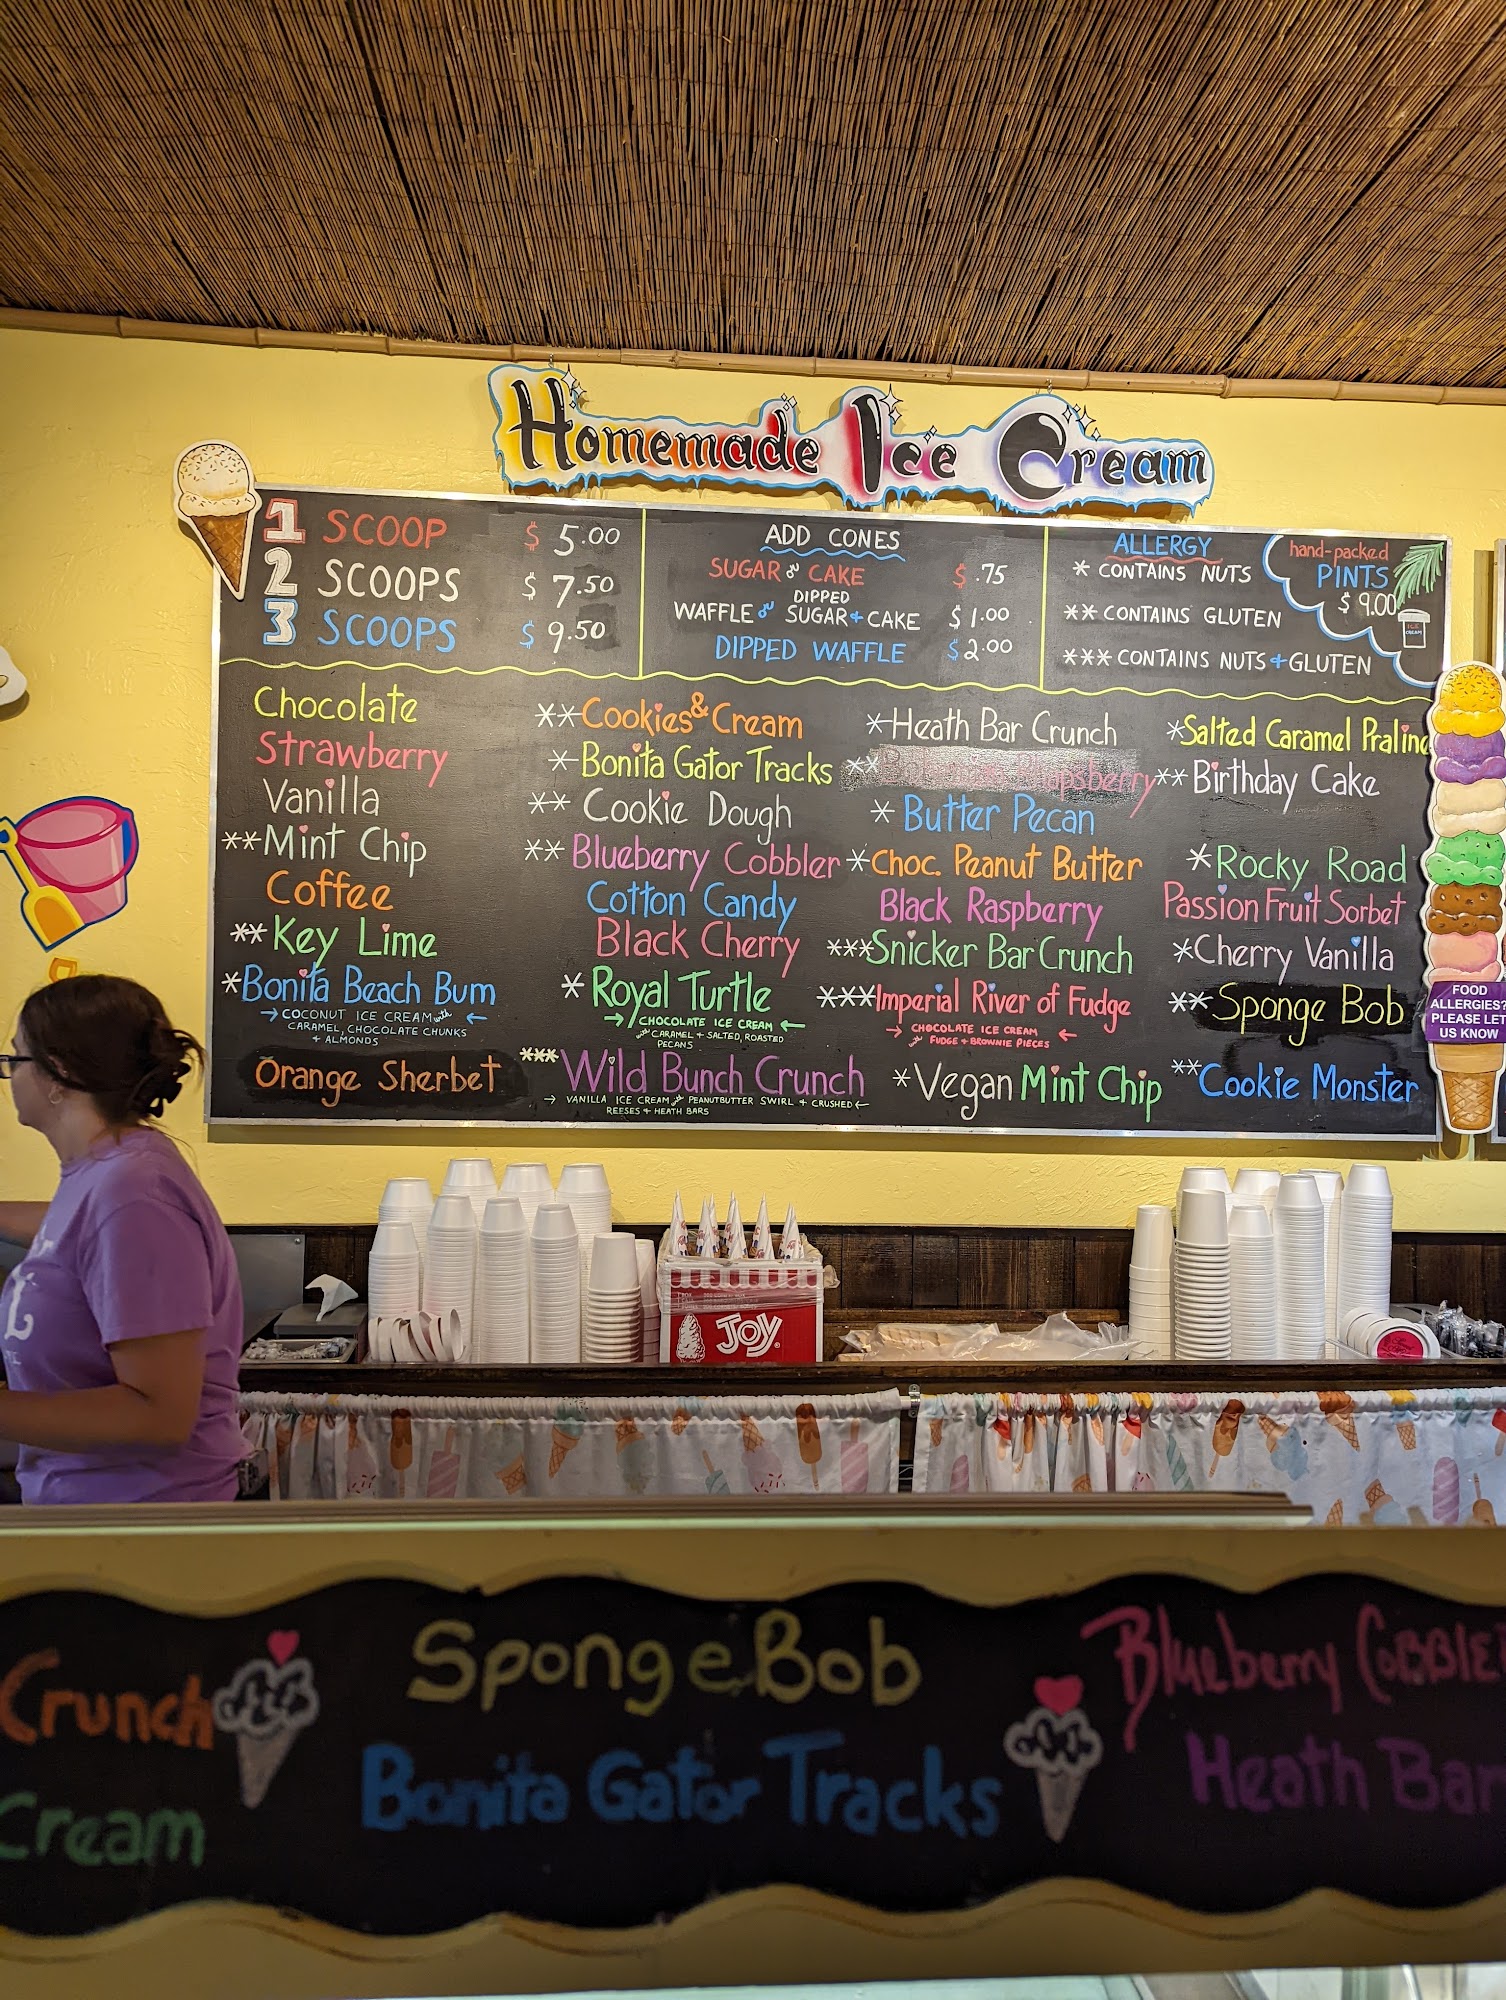 Homemade Ice Cream
1 SCOOP $ 5.00
2 SCOOPS $ 7.50
3 SCOOPS $ 9.50
ADD CONES
SUGAR or CAKE $ .75
DIPPED
WAFFLE or SUGAR + CAKE $ 1.00
DIPPED WAFFLE $ 2.00
ALLERGY
* CONTAINS NUTS
** CONTAINS GLUTEN
*** CONTAINS NUTS + GLUTEN
hand-packed
PINTS
$ 9.00
ICE
CREAM
Chocolate
Strawberry
Vanilla
**Mint Chip
Coffee
**Key Lime
*Bonita Beach Bum
→ COCONUT ICE CREAM with ←
CARAMEL, CHOCOLATE CHUNKS
+ ALMONDS
Orange Sherbet
**Cookies & Cream
*Bonita Gator Tracks
** Cookie Dough
** Blueberry Cobbler
Cotton Candy
Black Cherry
* Royal Turtle
→ CHOCOLATE ICE CREAM ←
with CARAMEL + SALTED, ROASTED
PECANS
***Wild Bunch Crunch
→ VANILLA ICE CREAM with PEANUTBUTTER SWIRL + CRUSHED ←
REESES + HEATH BARS
*Heath Bar Crunch
**
* Butter Pecan
*Choc. Peanut Butter
Black Raspberry
***Snicker Bar Crunch
***Imperial River of Fudge
→ CHOCOLATE ICE CREAM ←
with FUDGE + BROWNIE PIECES
*Vegan Mint Chip
*Salted Caramel Praline
**Birthday Cake
*Rocky Road
Passion Fruit Sorbet
*Cherry Vanilla
**Sponge Bob
**Cookie Monster
FOOD
ALLERGIES?
PLEASE LET
US KNOW
JOY
Crunch
Cream
SpongeBob
Bonita Gator Tracks
Blueberry Cobbler
Heath Bar